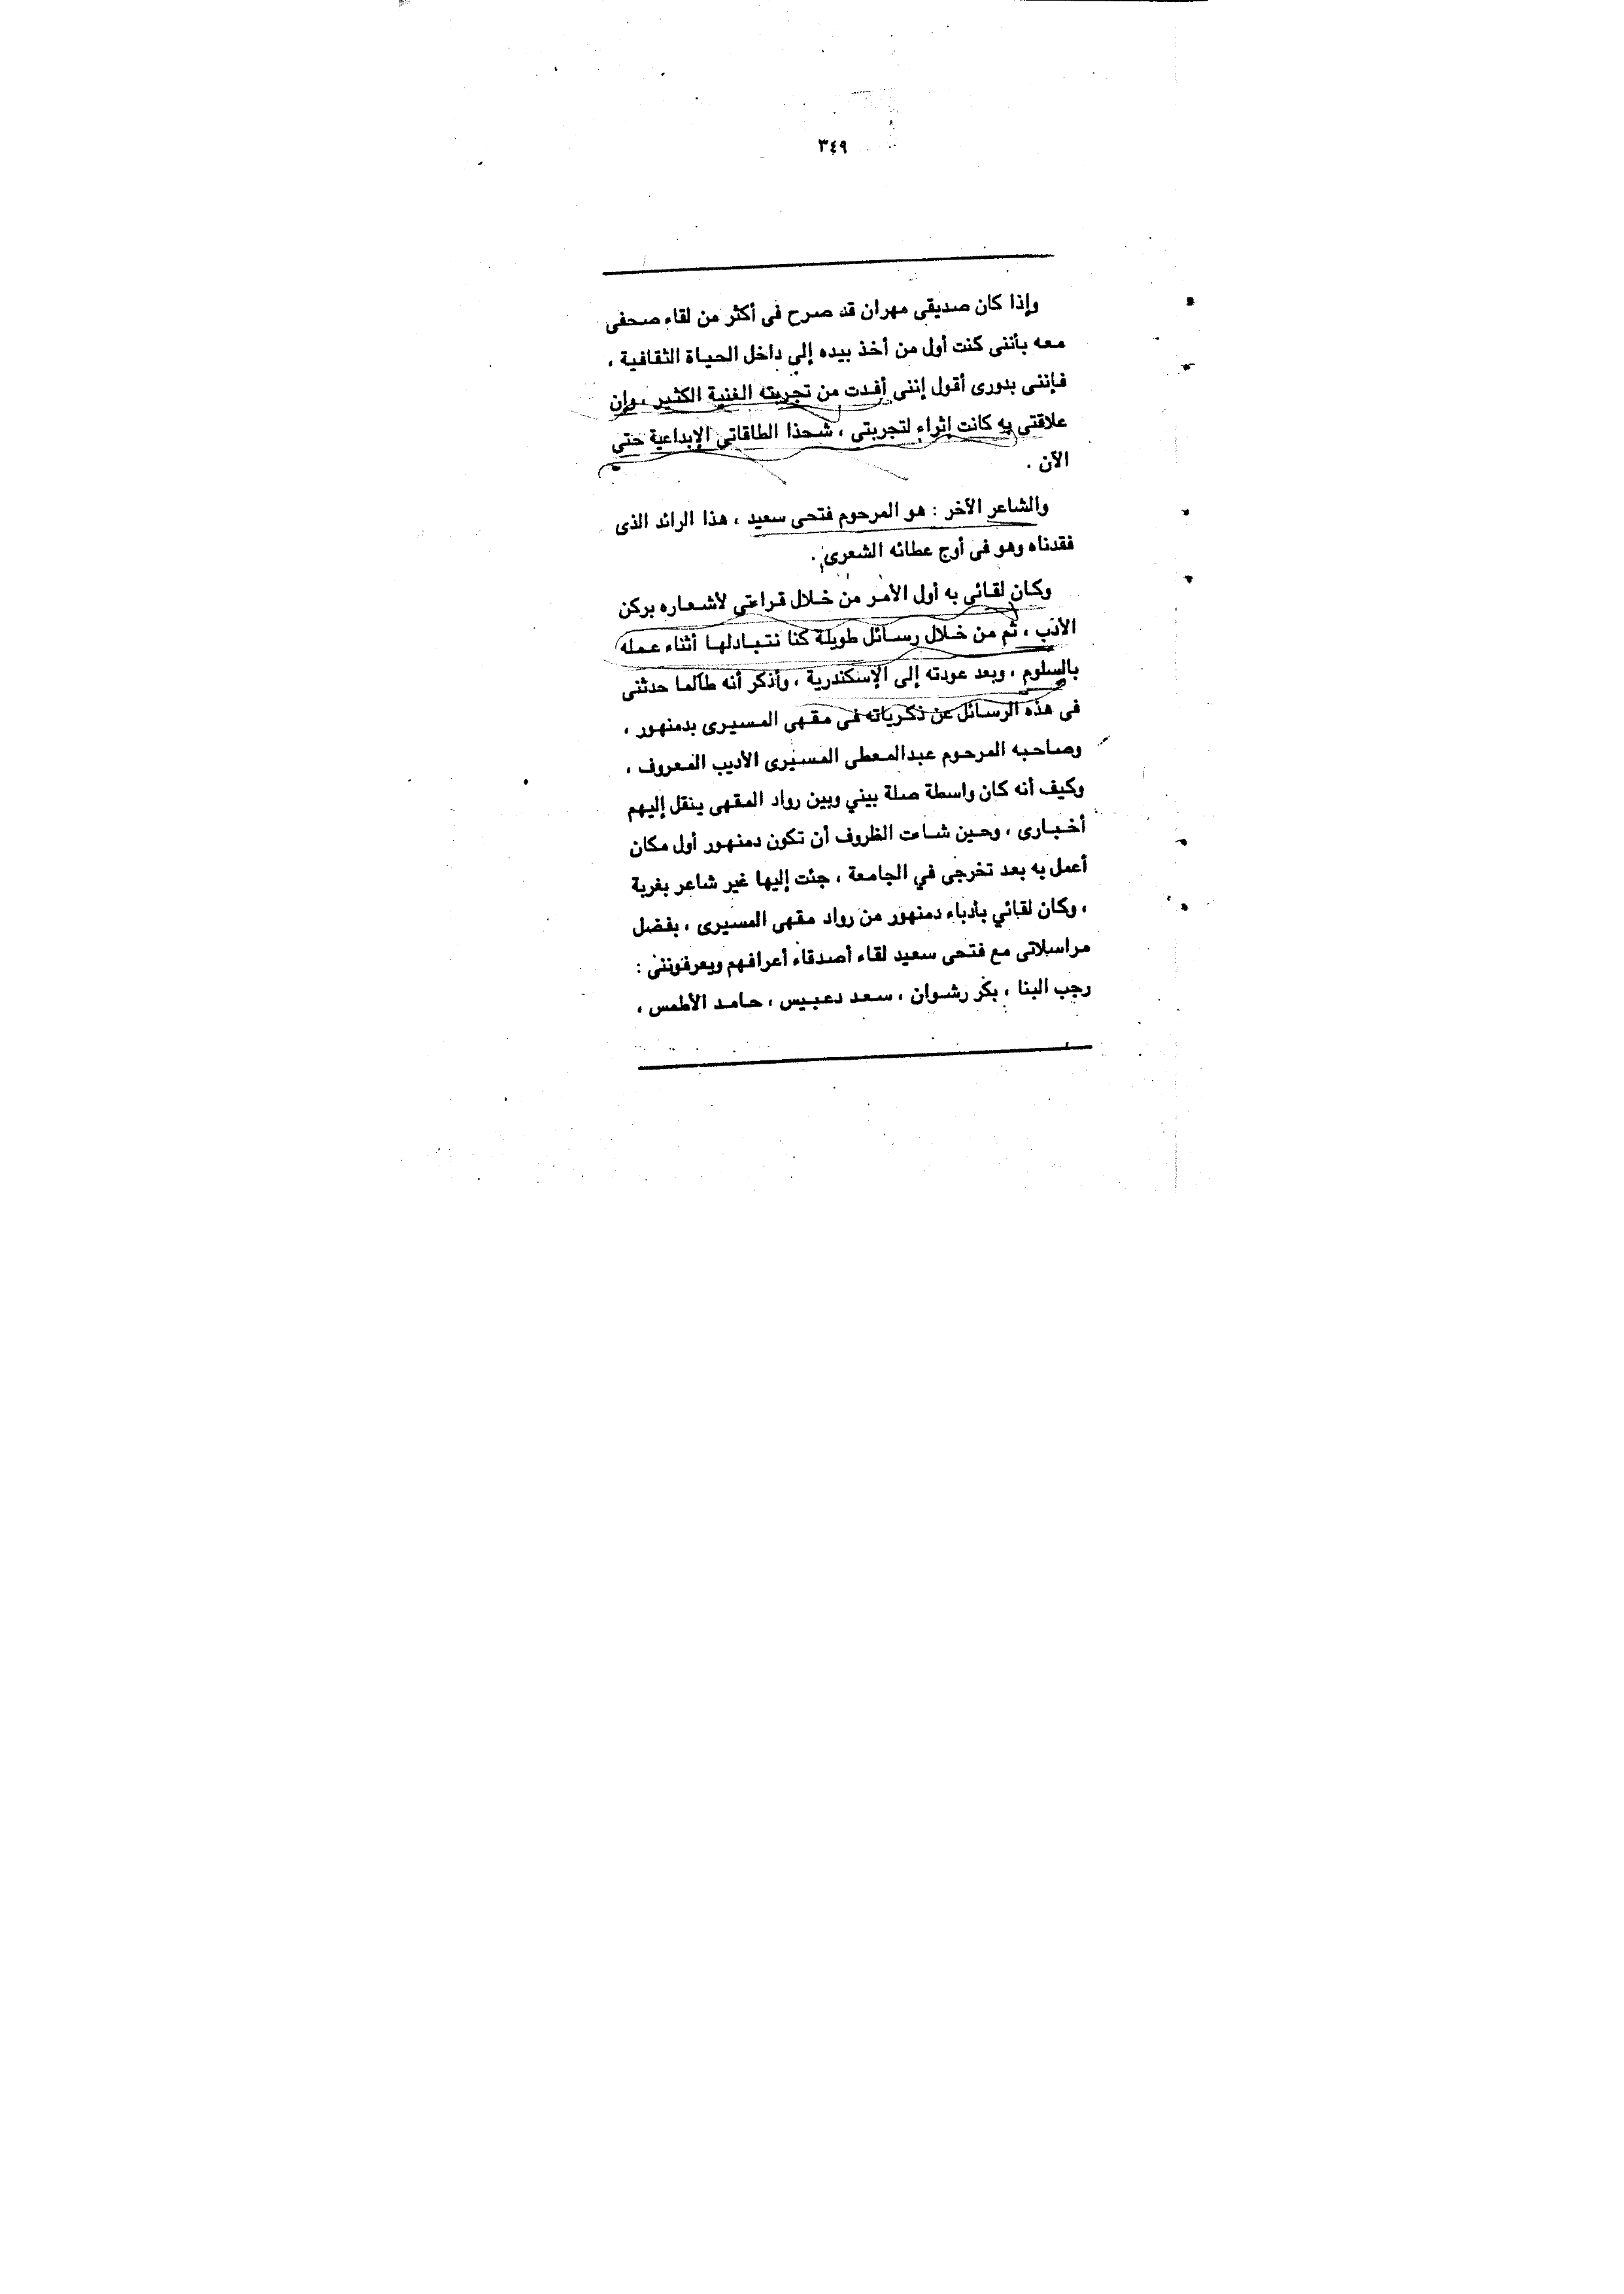 ٣٤٩
وإذا كان صديقى مهران قد صرح فى أكثر من لقاء صحفى
معه بأننى كنت أول من أخذ بيده إلى داخل الحياة الثقافية ،
فإننى بدورى أقول إننى أفدت من تجربته الفنية الكثير ، وإن
علاقتى به كانت إثراء لتجربتى ، شحذا الطاقاتى الإبداعية حتى
الآن .
والشاعر الآخر : هو المرحوم فتحى سعيد ، هذا الرائد الذى
فقدناه وهو فى أوج عطائه الشعرى .
وكان لقائي به أول الأمر من خلال قراءتى لأشعاره بركن
الأدب ، ثم من خلال رسائل طويلة كنا نتبادلها أثناء عمله
بالسلوم ، وبعد عودته إلى الإسكندرية ، وأذكر أنه طالما حدثنى
فى هذه الرسائل عن ذكرياته فى مقهى المسيرى بدمنهور ،
وصاحبه المرحوم عبدالمعطى المسيرى الأديب المعروف ،
وكيف أنه كان واسطة صلة بيني وبين رواد المقهى ينقل إليهم
أخبارى ، وحين شاءت الظروف أن تكون دمنهور أول مكان
أعمل به بعد تخرجى في الجامعة ، جئت إليها غير شاعر بغربة
، وكان لقائي بأدباء دمنهور من رواد مقهى المسيرى ، بفضل
مراسلاتى مع فتحى سعيد لقاء أصدقاء أعرافهم ويعرفوننى :
رجب البنا ، بكر رشوان ، سعد دعبيس ، حامد الأطمس ،